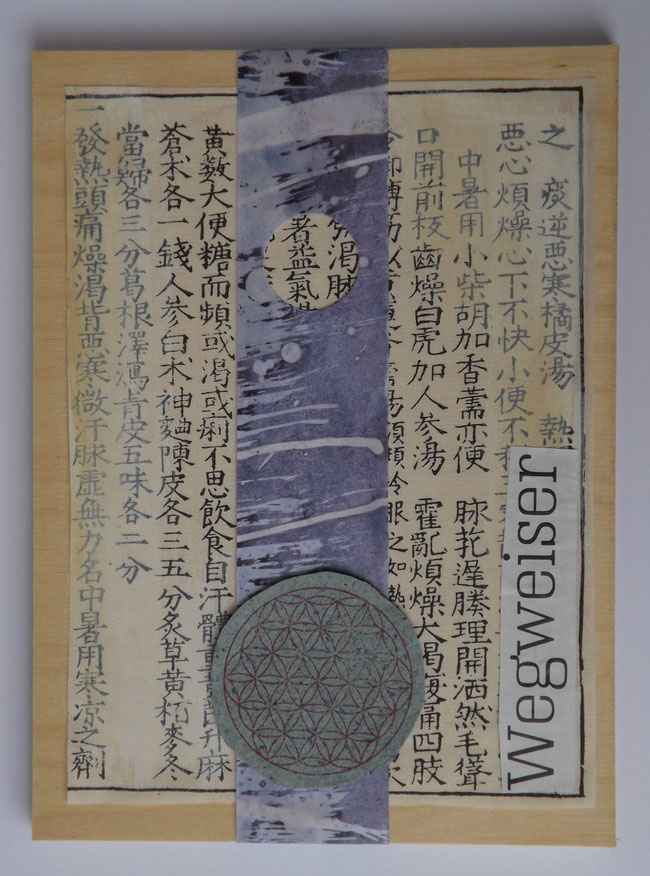 之 痰逆惡寒橘皮湯 熱
惡心煩燥心下不快小便不
中暑用小柴胡加香薷亦便 脉芤遲腠理開洒然毛聳
口開前板齒燥白虎加人参湯 霍亂煩燥大渴腹痛四肢
渴脉
暑益氣
黄数大便糖而頻或渴或痢不思飲食自汗體 升麻
蒼术各一錢人参白术神麯陳皮各三五分炙草黄栢麥冬
當歸各三分葛根澤瀉青皮五味各二分
一發熱頭痛燥渴背惡寒微汗脉虚無力名中暑用寒凉之劑
Wegweiser